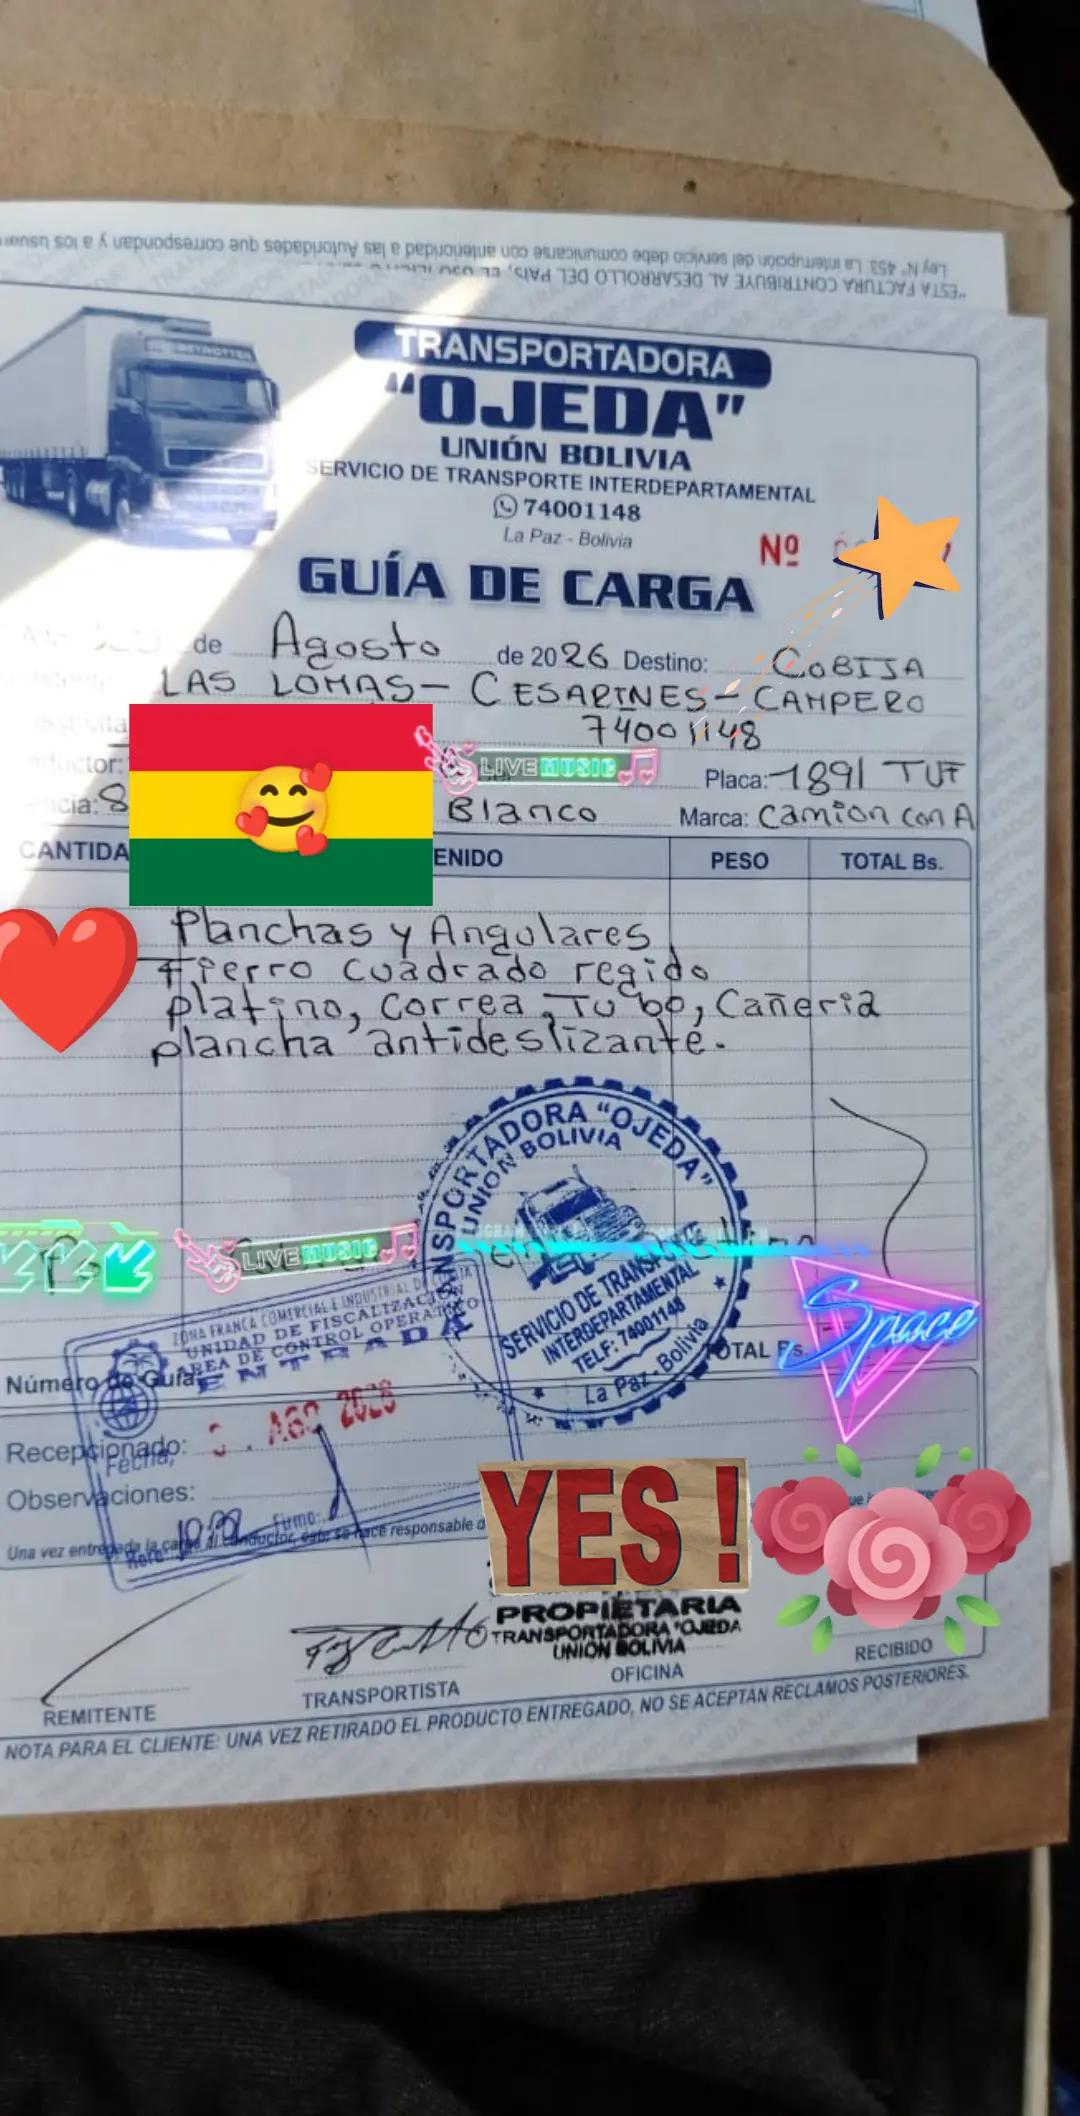 Ley N° 453. La interrupción del servicio debe comunicarse con anterioridad a las Autoridades que correspondan y a los
"ESTA FACTURA CONTRIBUYE AL DESARROLLO DEL PAÍS, EL USO
TRANSPORTADORA
"OJEDA"
UNIÓN BOLIVIA
SERVICIO DE TRANSPORTE INTERDEPARTAMENTAL
74001148
La Paz - Bolivia
Nº
GUÍA DE CARGA
de Agosto de 2026 Destino: COBIJA
LAS LOMAS - CESARINES - CAMPERO
74001148
LIVE MUSIC
Placa: 1891 TUF
Blanco Marca: Camion con A
PESO TOTAL Bs.
Planchas y Angulares
Fierro cuadrado regido
platino, correa, Tubo, Cañeria
plancha antideslizante.
TRANSPORTADORA "OJEDA"
UNION BOLIVIA
SERVICIO DE TRANSPORTE
INTERDEPARTAMENTAL
TELF: 74001148
La Paz - Bolivia
LIVE MUSIC
Space
ZONA FRANCA COMERCIAL E INDUSTRIAL DE
UNIDAD DE FISCALIZACIÓN
AREA DE CONTROL OPERATIVO
ENTRADA
TOTAL Bs.
Número de Guía:
AGO 2026
Recepcionado:
Fecha:
Observaciones:
Firma:
Hora:
Una vez entregada la carga al conductor, este se hace responsable
YES!
PROPIETARIA
TRANSPORTADORA "OJEDA
UNION BOLIVIA
REMITENTE TRANSPORTISTA OFICINA RECIBIDO
NOTA PARA EL CLIENTE: UNA VEZ RETIRADO EL PRODUCTO ENTREGADO, NO SE ACEPTAN RECLAMOS POSTERIORES.